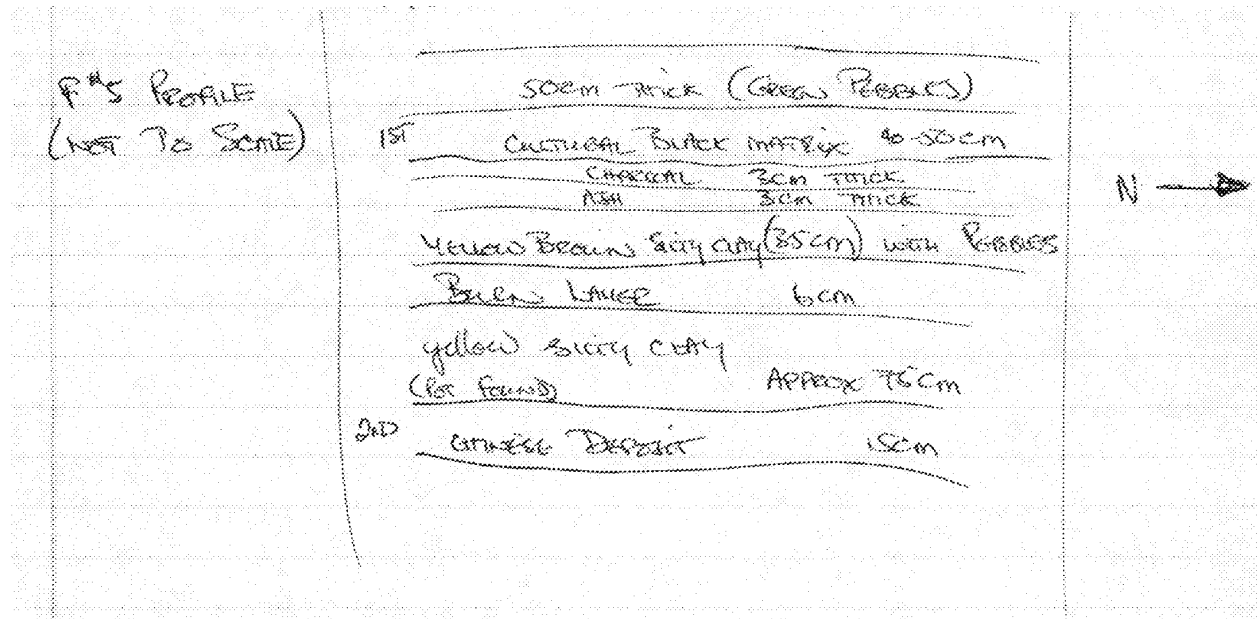 F#5 PROFILE
(NOT TO SCALE)
50cm THICK (GREEN PEBBLES)
1ST CULTURAL BLACK MATRIX 40-50cm
CHARCOAL 3cm THICK
ASH 3cm THICK
YELLOW BROWN SILTY CLAY (35cm) WITH PEBBLES
BURN LAYER 6cm
yellow SILTY CLAY
(Pot found) APPROX 75cm
2ND CHINESE DEPOSIT 15cm
N